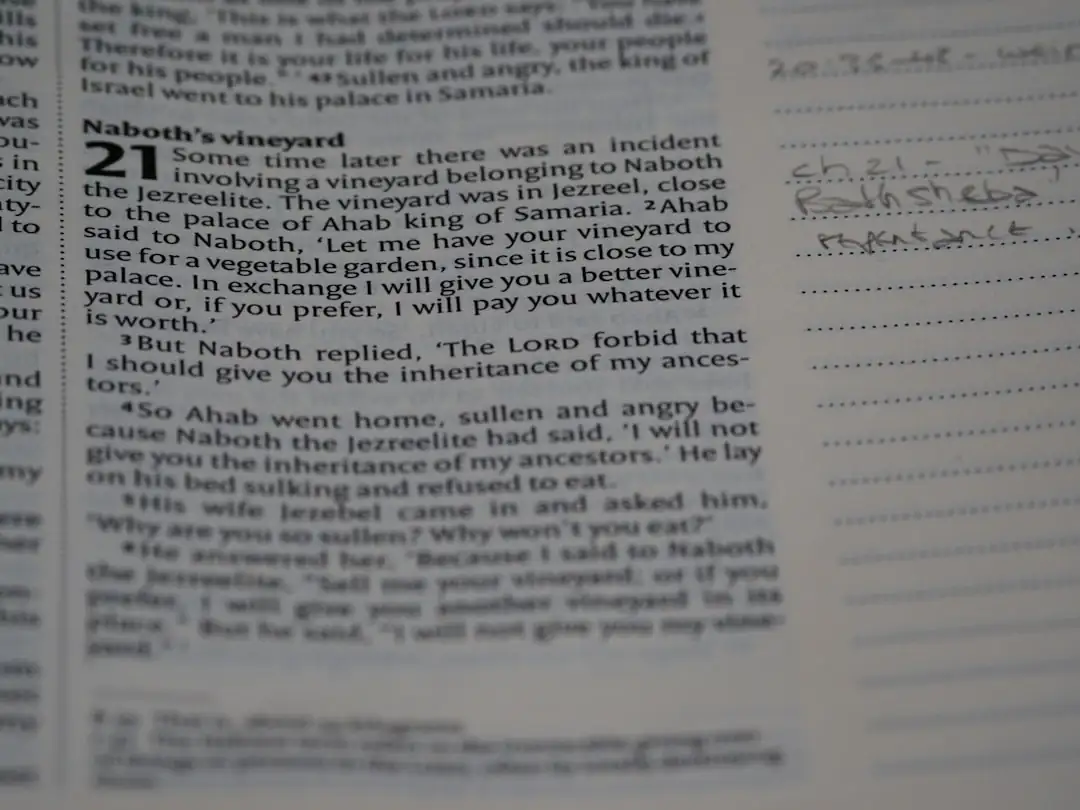 the king, 'This is what the LORD says: 'You have
set free a man I had determined should die.
Therefore it is your life for his life, your people
for his people.' ' 43 Sullen and angry, the king of
Israel went to his palace in Samaria.
Naboth's vineyard
21 Some time later there was an incident
involving a vineyard belonging to Naboth
the Jezreelite. The vineyard was in Jezreel, close
to the palace of Ahab king of Samaria. 2 Ahab
said to Naboth, 'Let me have your vineyard to
use for a vegetable garden, since it is close to my
palace. In exchange I will give you a better vine-
yard or, if you prefer, I will pay you whatever it
is worth.'
3 But Naboth replied, 'The LORD forbid that
I should give you the inheritance of my ances-
tors.'
4 So Ahab went home, sullen and angry be-
cause Naboth the Jezreelite had said, 'I will not
give you the inheritance of my ancestors.' He lay
on his bed sulking and refused to eat.
5 His wife Jezebel came in and asked him,
'Why are you so sullen? Why won't you eat?'
6 He answered her, 'Because I said to Naboth
the Jezreelite, "Sell me your vineyard; or if you
prefer, I will give you another vineyard in its
place." But he said, "I will not give you my vine-
yard." '
ills
his
ow
ach
was
ou-
in
city
aty-
to
ave
us
our
he
and
ing
ays:
my
ch.21 -
Bathsheba"
repentance